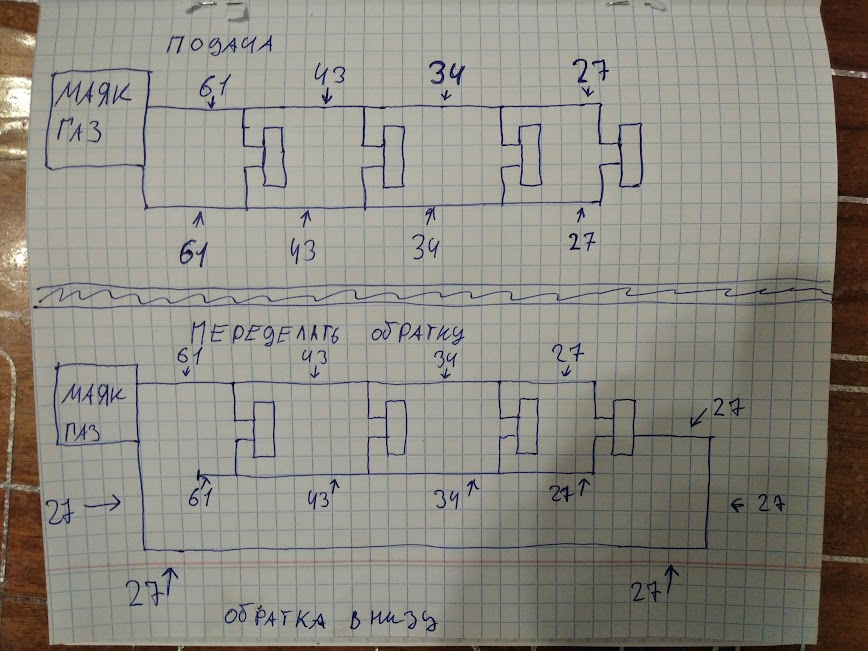 ПОДАЧА
61 43 34 27
МАЯК
ГАЗ
61 43 34 27
ПЕРЕДЕЛАТЬ ОБРАТКУ
61 43 34 27
МАЯК
ГАЗ
27
61 43 34 27
27 27
27 27
ОБРАТКА ВНИЗУ